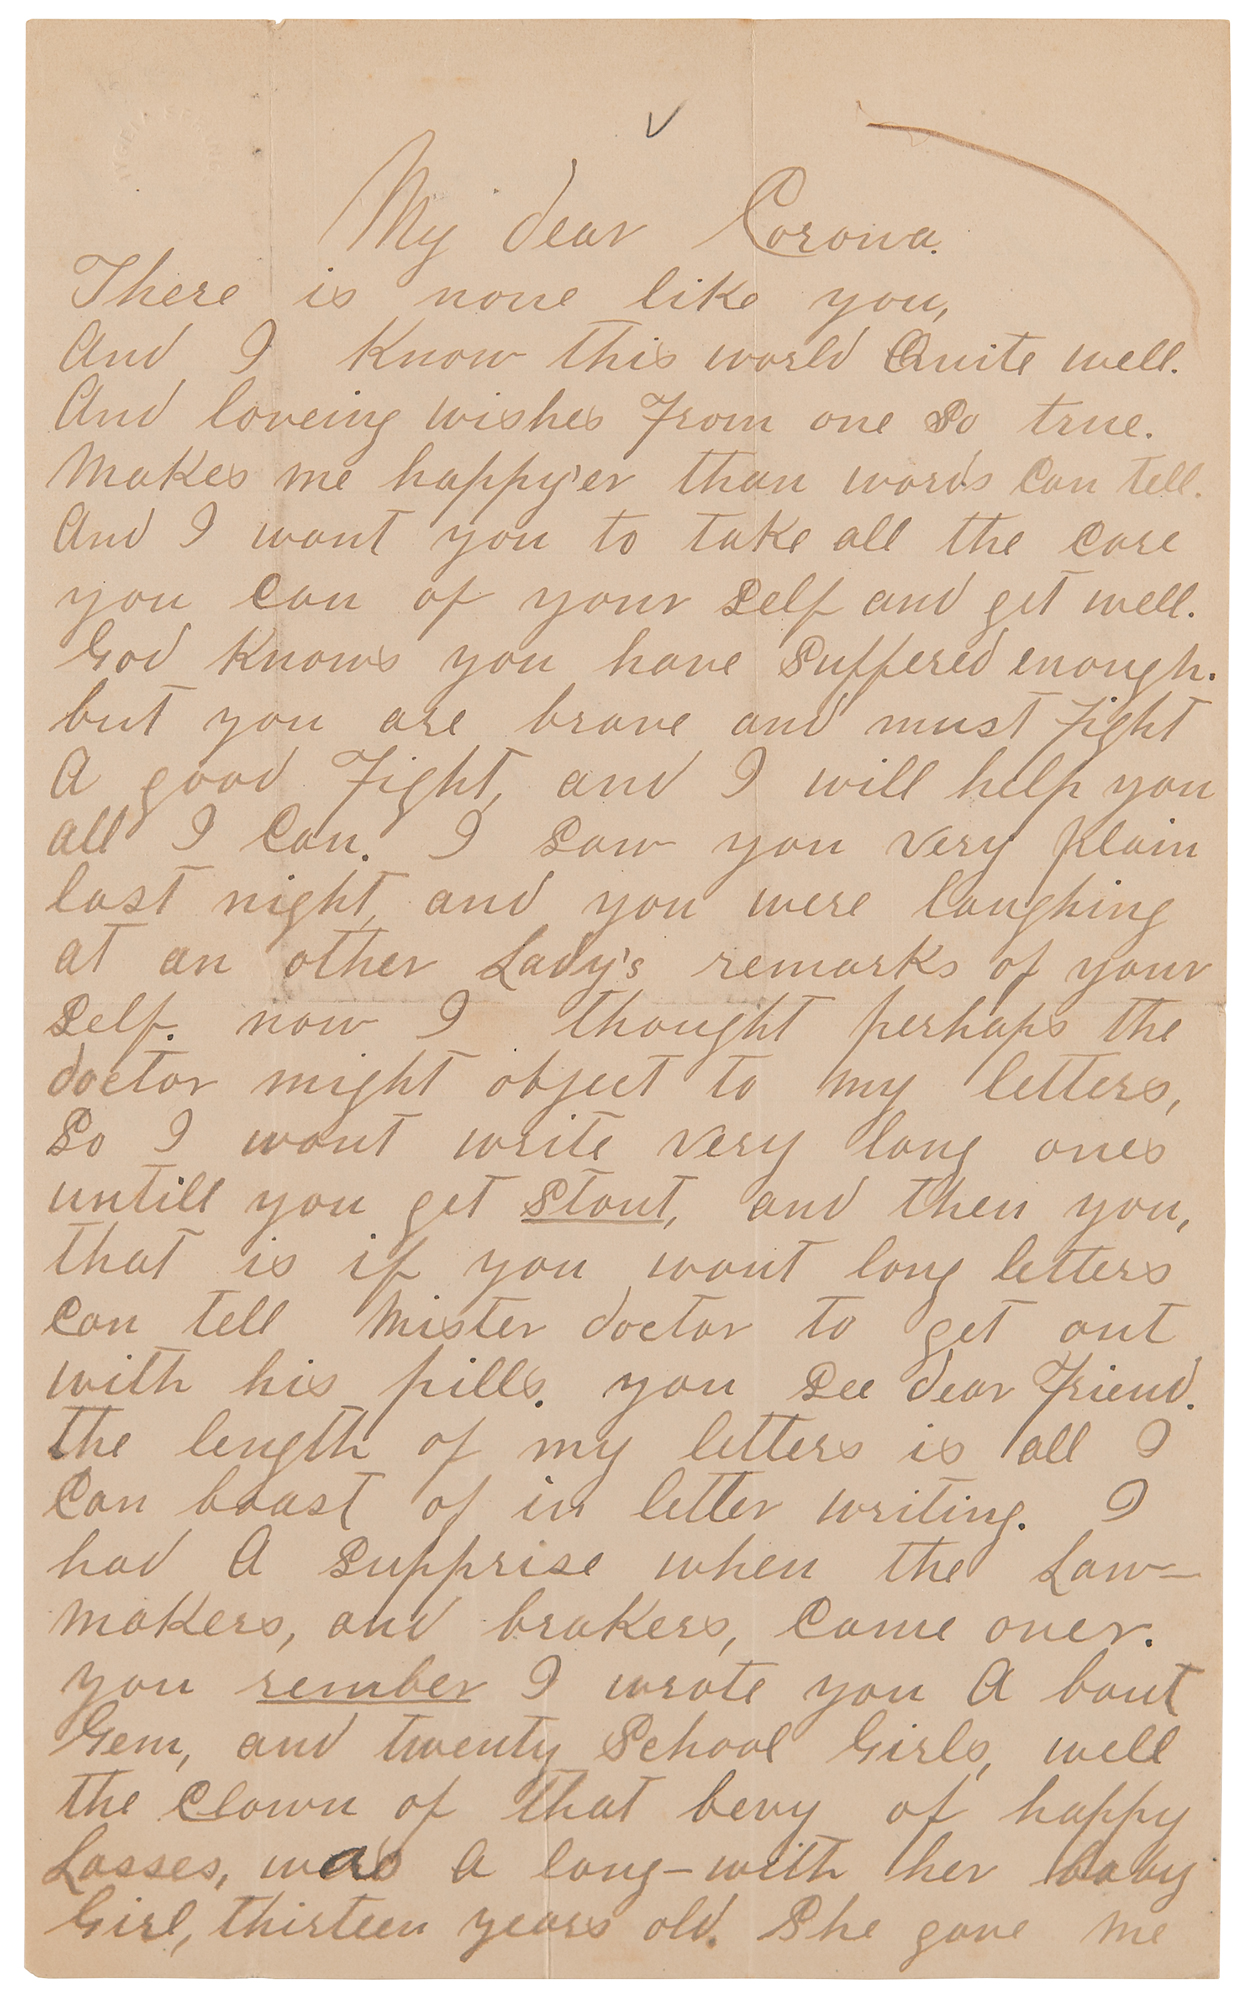 My dear Corona.
There is none like you,
And I Know this world Quite well.
And loveing wishes From one So true.
Makes me happy'er than words Can tell.
And I want you to take all the Care
you Can of your Self and get well.
God Knows you have Suffered enough.
but you are brave and must Fight
A good Fight, and I will help you
all I Can. I Saw you very plain
last night, and you were laughing
at an other Lady's remarks of your
Self. now I thought perhaps the
doctor might object to my letters,
So I wont write very long ones
untill you get Stout, and then you,
that is if you want long letters
Can tell Mister doctor to get out
with his pills. you See dear Friend.
the length of my letters is all I
Can boast of in letter writing. I
had A Supprise when the Law-
makers, and brakers, Came over.
you rember I wrote you A bout
Gem, and twenty School Girls, well
the Clown of that bevy of happy
Lasses, was A long-with her baby
Girl, thirteen years old. She gave me